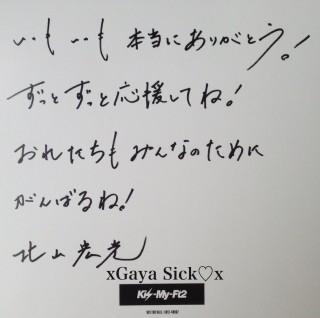 いつも いつも 本当にありがとう!
ずっとずっと応援してね!
おれたちも みんなのために
がんばるね!
北山宏光
xGaya Sick♡x
Kis-My-Ft2